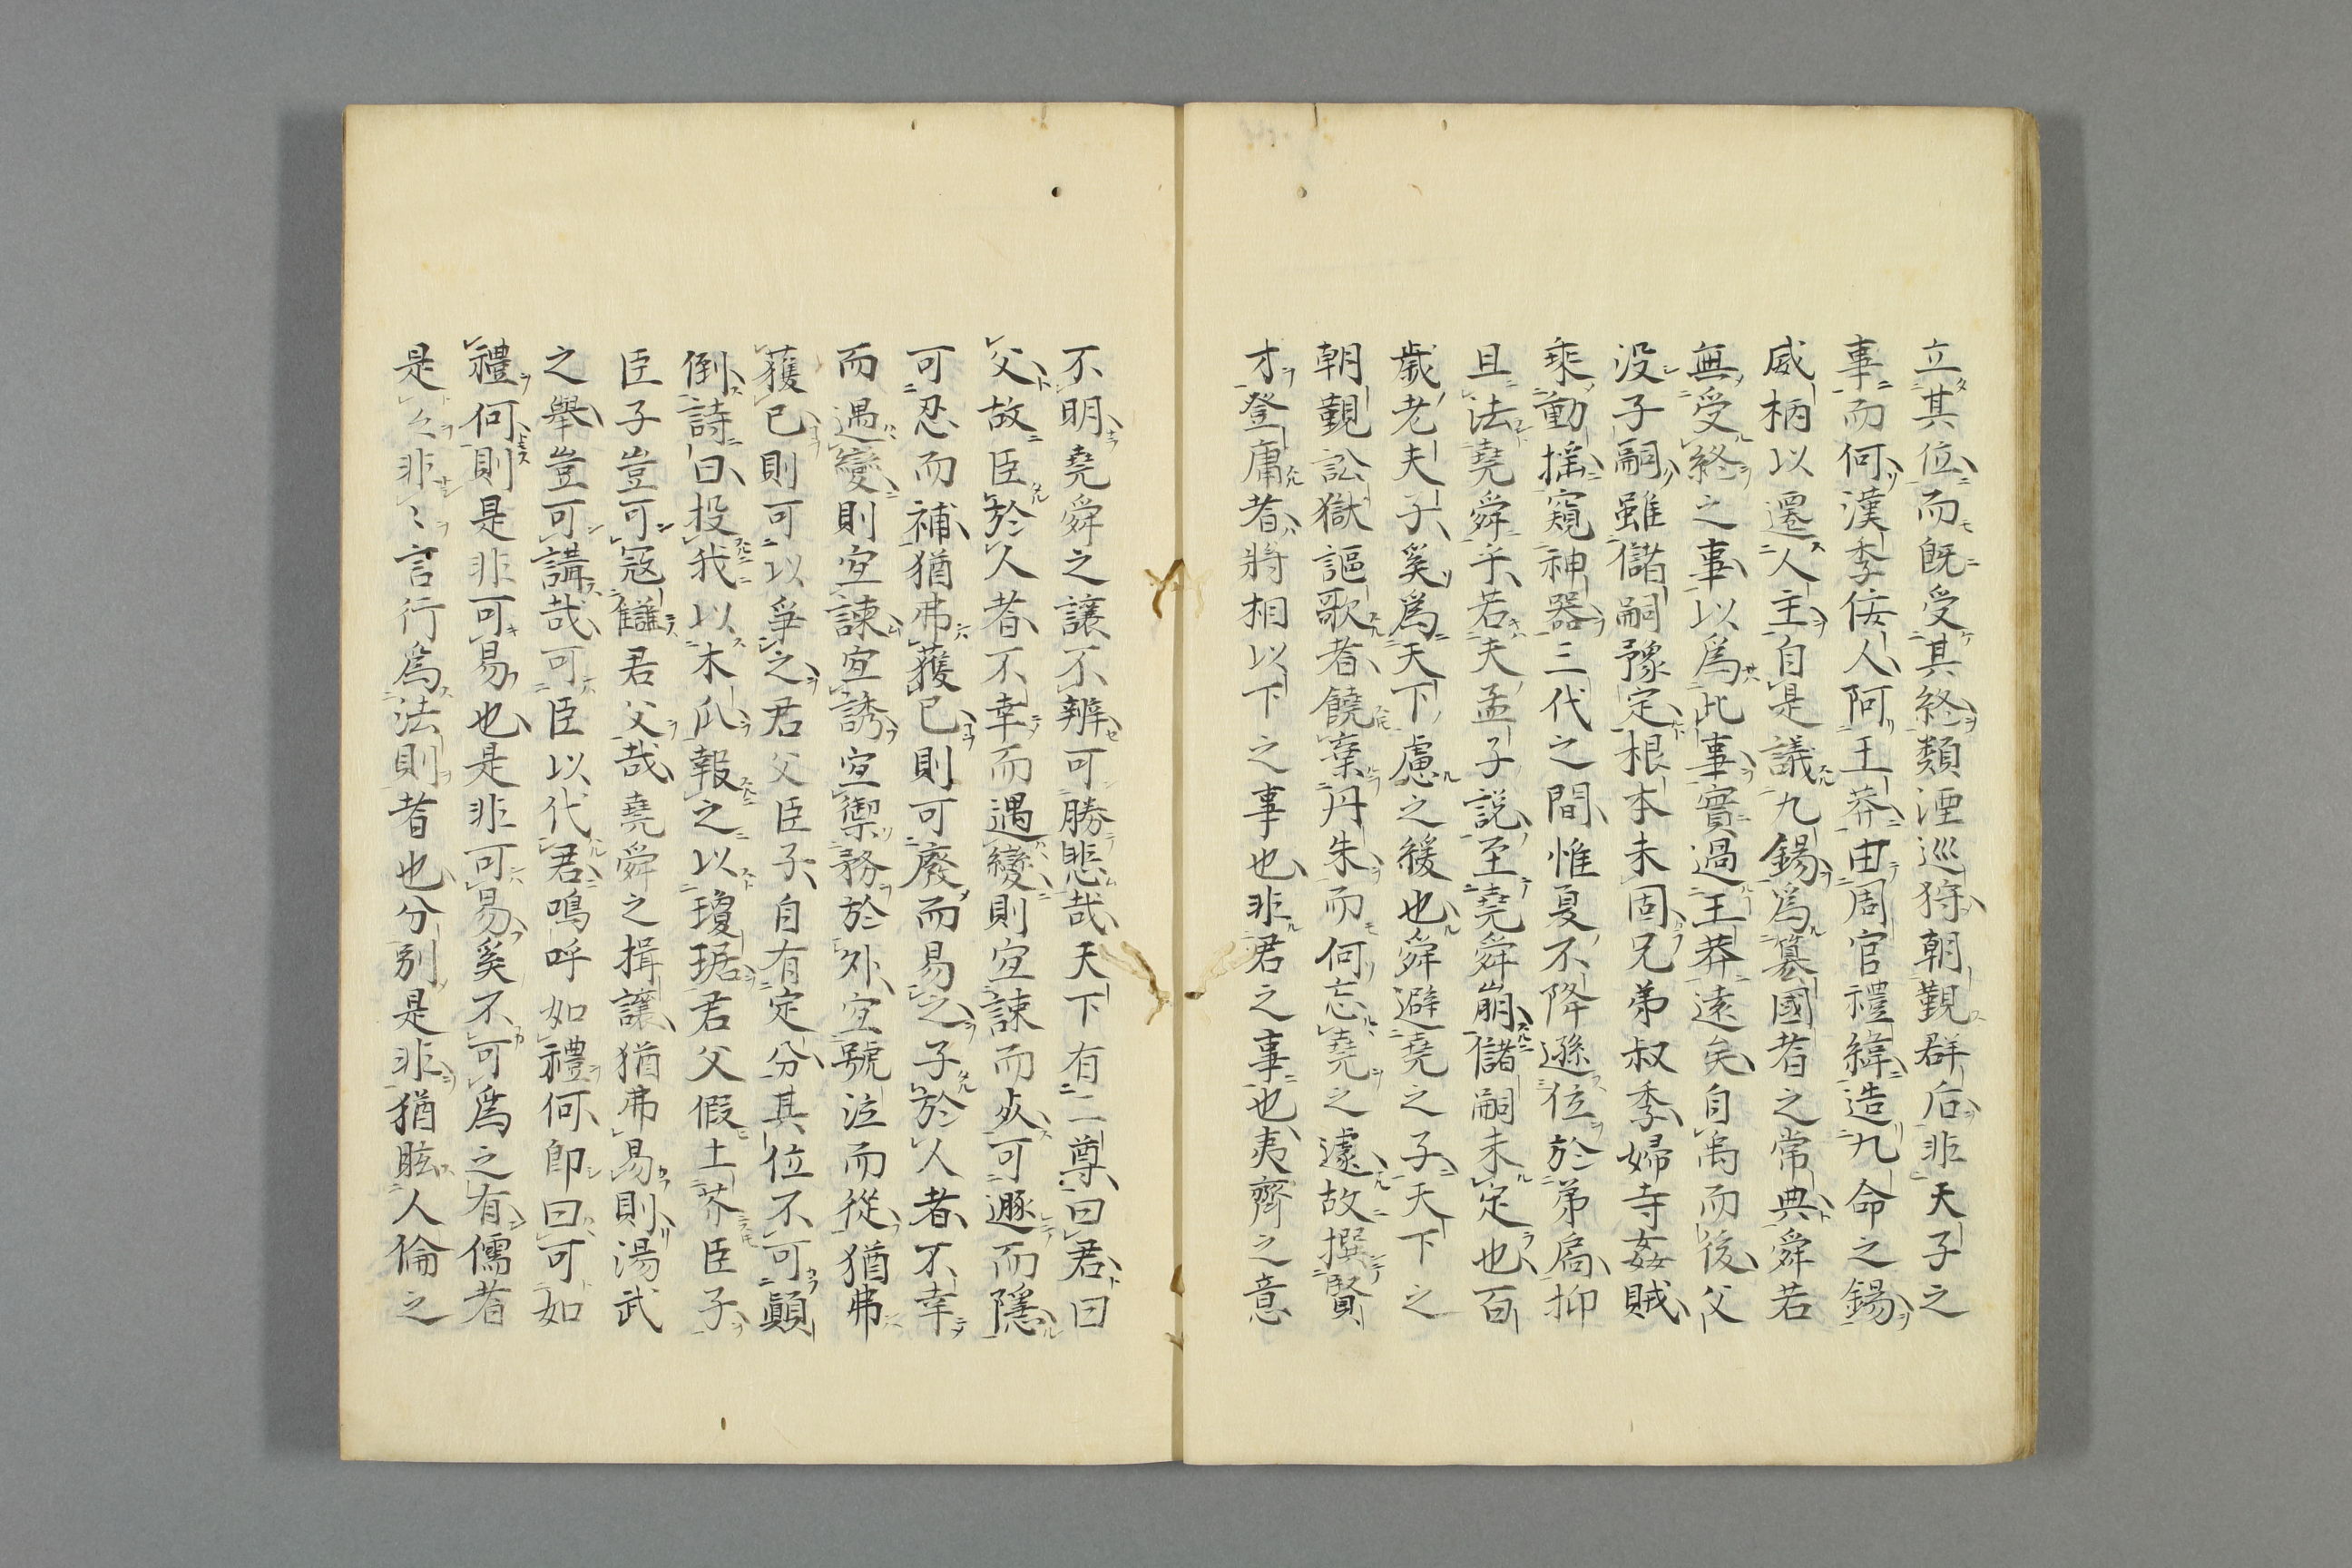 立其位而既受其終類湮巡狩朝覲群后非天子之
事而何漢季侫人阿王莽由周官禮緯造九命之錫
威柄以遷人主自是議九錫爲簒國者之常典舜若
無受終之事以爲此事實過王莽遠矣自禹而後父
没子嗣雖儲嗣豫定根本未固兄弟叔季婦寺姦賊
乘動揺窺神器三代之間惟夏不降遜位於弟扃抑
且法堯舜乎若夫孟子説至堯舜崩儲嗣未定也百
歳老夫子奚爲天下慮之緩也舜避堯之子天下之
朝覲訟獄謳歌者饒棄丹朱而何忘堯之遽故撰賢
才登庸者將相以下之事也非君之事也夷齊之意
不明堯舜之讓不辨可勝悲哉天下有二尊曰君曰
父故臣於人者不幸而遇變則宜諫而死可遯而隱
可忍而補猶弗獲已則可廢而易之子於人者不幸
而遇變則宜諫宜誘宜禦務於外宜號泣而從猶弗
獲已則可以爭之君父臣子自有定分其位不可顚
倒詩曰投我以木瓜報之以瓊琚君父假土芥臣子
臣子豈可寇讎君父哉堯舜之揖讓猶弗易則湯武
之舉豈可講哉可臣以代君嗚呼如禮何即曰可如
禮何則是非可易也是非可易奚不可爲之有儒者
是々非〻言行爲法則者也分別是非猶眩人倫之